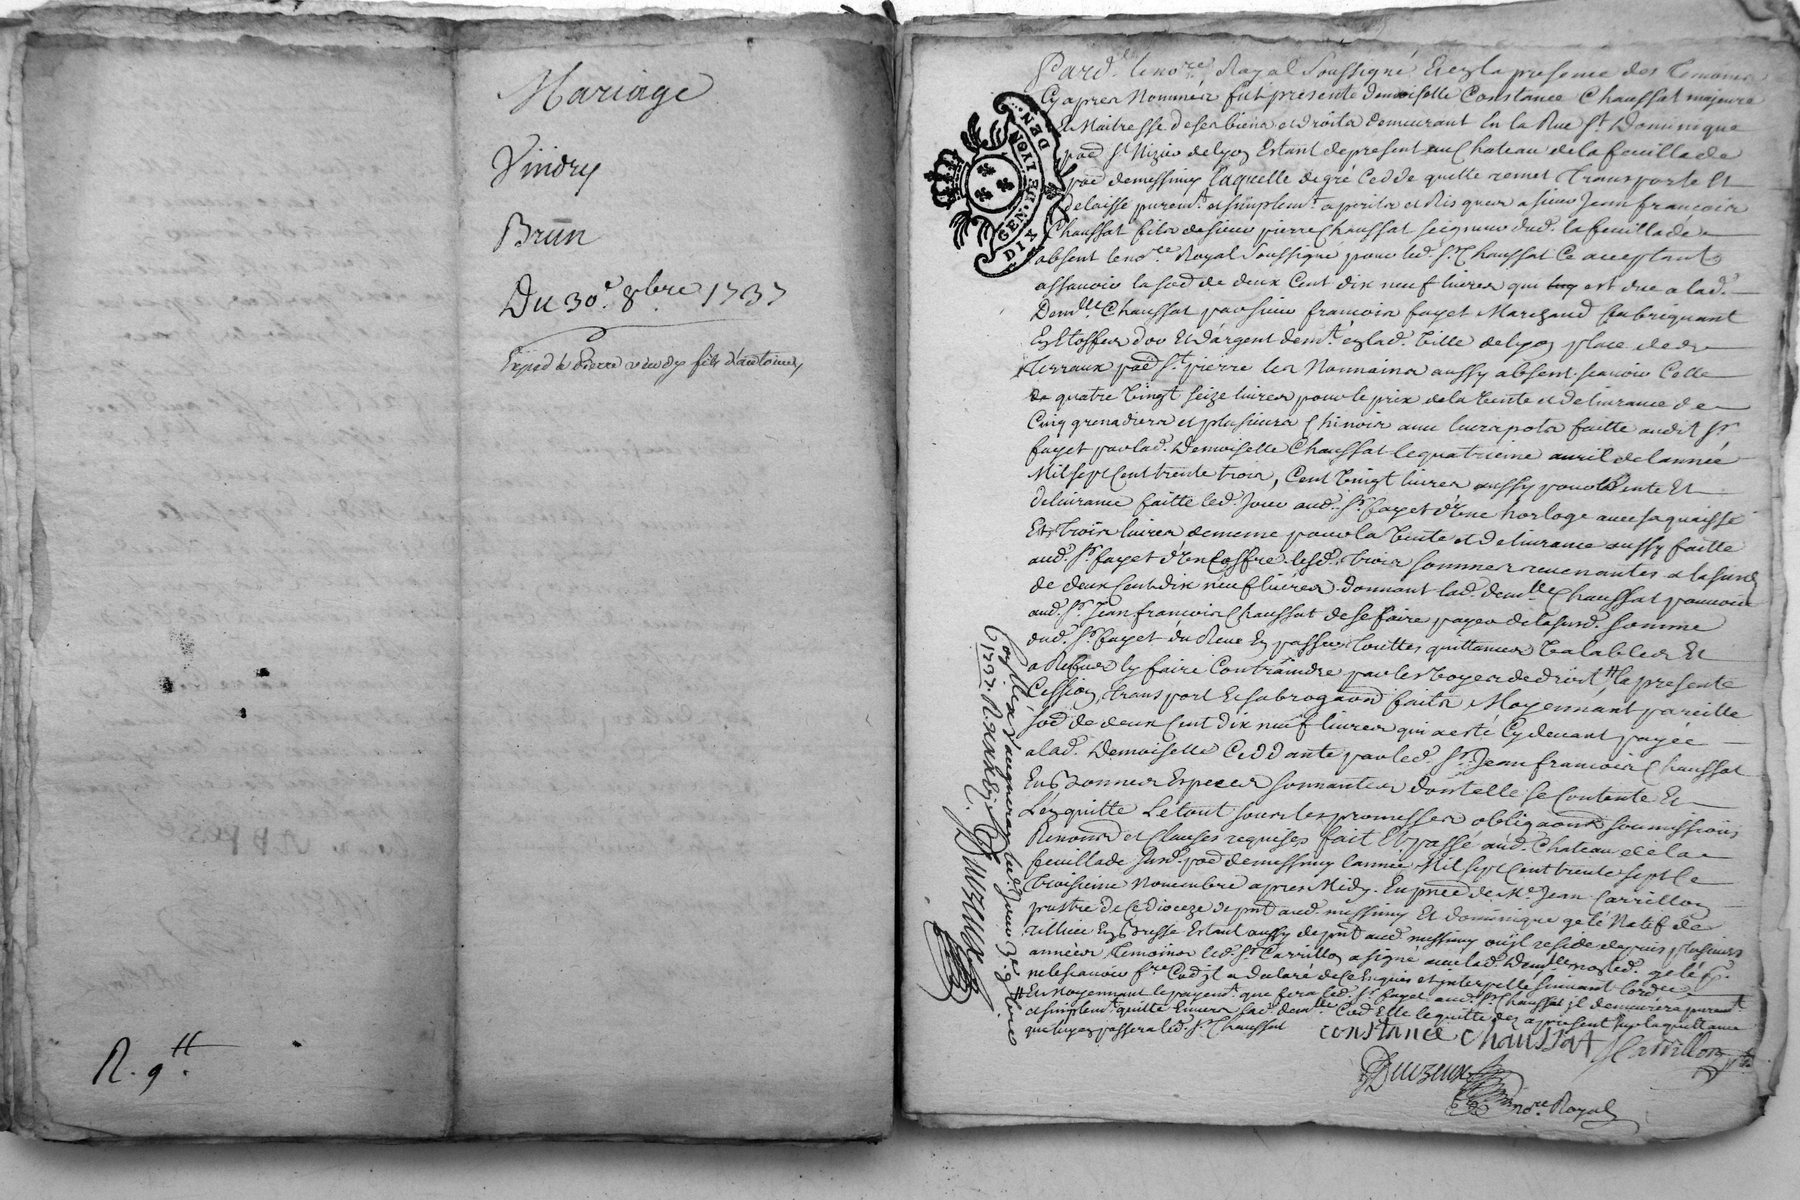 Mariage
Vindry
Brūn
Du 30e. 8bre 1737
Exped à Pierre vindry fils d'antoine
R. 9tt.
GEN. DE LYON
DIX DEN.
Pard.t le nore. Royal soussigné Et en la presence des Temoins
Cy apres Nommés fut presente demoiselle Constance Chaussat majeure
Et Maitresse de ses biens et droits demeurant En la Rue St. Dominique
psse St. Nizier de Lyon Estant de present au Chateau de la feuillade
psse de messimy Laquelle de gré Cedde quitte remet Transporte Et
delaisse puremt. et simplemt. a perils et Risques a sieur Jean francois
Chaussat fils de sieur pierre Chaussat seigneur dud. la feuillade
absent le nore. Royal soussigné pour led. Sr. Chaussat Ce acceptant
assavoir la sod. de deux Cent dix neuf livres qui est due a lad.
Demlle. Chaussat par sieur francois fayet Marchand fabriquant
En Etoffes d'or Et d'argent demt. en lad. Ville de Lyon place de
Terraux psse St. pierre les Nonnains aussy absent scavoir Celle
de quatre Vingt seize livres pour le prix de la Vente et delivrance de
Cinq grenadiers et plusieurs Chinois avec leurs pots faitte audit Sr.
fayet par lad. Demoiselle Chaussat le quatrieme avril de l'année
Mil sept Cent trente trois, Cent Vingt livres aussy pour Vente Et
delivrance faitte led. Jour aud. Sr. fayet d'Une horloge avec sa quaisse
Et trois livres de meme pour la Vente et delivrance aussy faitte
aud. Sr. fayet d'Un Coffre lesd. trois sommes revenantes a la susd.
de deux Cent dix neuf livres donnant lad. demlle. Chaussat pouvoir
aud. Sr. Jean francois Chaussat de se faire payer de la susd. somme
dud. Sr. fayet du Receu En passer touttes quittances Valables Et
a Refus ly faire Contraindre par les Voyes de droit # la presente
Cession, transport Et subrogaon faits Moyennant pareille
sod. de deux Cent dix neuf livres qui a esté Cy devant payée
a lad. Demoiselle Ceddante par led. Sr. Jean francois Chaussat
En bonnes Especes sonnantes dont elle se Contente Et
Len quitte Le tout sous les promesses obligaons soumissions
Renonons et clauses requises fait Et passé aud. Chateau de la
feuillade susd. psse de messimy l'année Mil sept Cent trente sept Le
troisieme Novembre apres Midy. En pnce de Me. Jean Carrillon
prestre de Ce dioceze de pnt aud. messimy Et dominique gelé Natif de
Villieu En Bresse Estant aussy de pnt aud. messimy ou il reside depuis plusieurs
années Temoins led. Sr. Carrillon a signé avec lad. Demlle. non led. gelé
ne le scavoir fre. Comme il a declaré de ce Enquis et interpellé suivant lordce
# Et Moyennant le payemt. que fera led. Sr. fayet aud. Sr. Chaussat il demeurera purement
et simplemt. quitte Envers lad. demlle. Elle le quitte des apresent par la quittance
que luy en passera led. Sr. Chaussat
constance chaussat Carrillon ptre
Duzeux
nore. Royal
Conllé a Vaugneray led. Jour 3e. 9bre
1737. R.
Duzeux